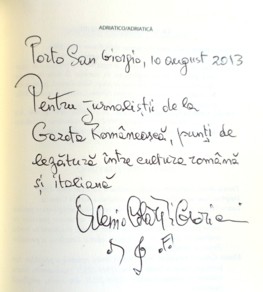 ADRIATICO/ADRIATICĂ
Porto San Giorgio, 10 august 2013
Pentru jurnaliștii de la
Gazeta Românească, punți de
legătură între cultura română
și italiană